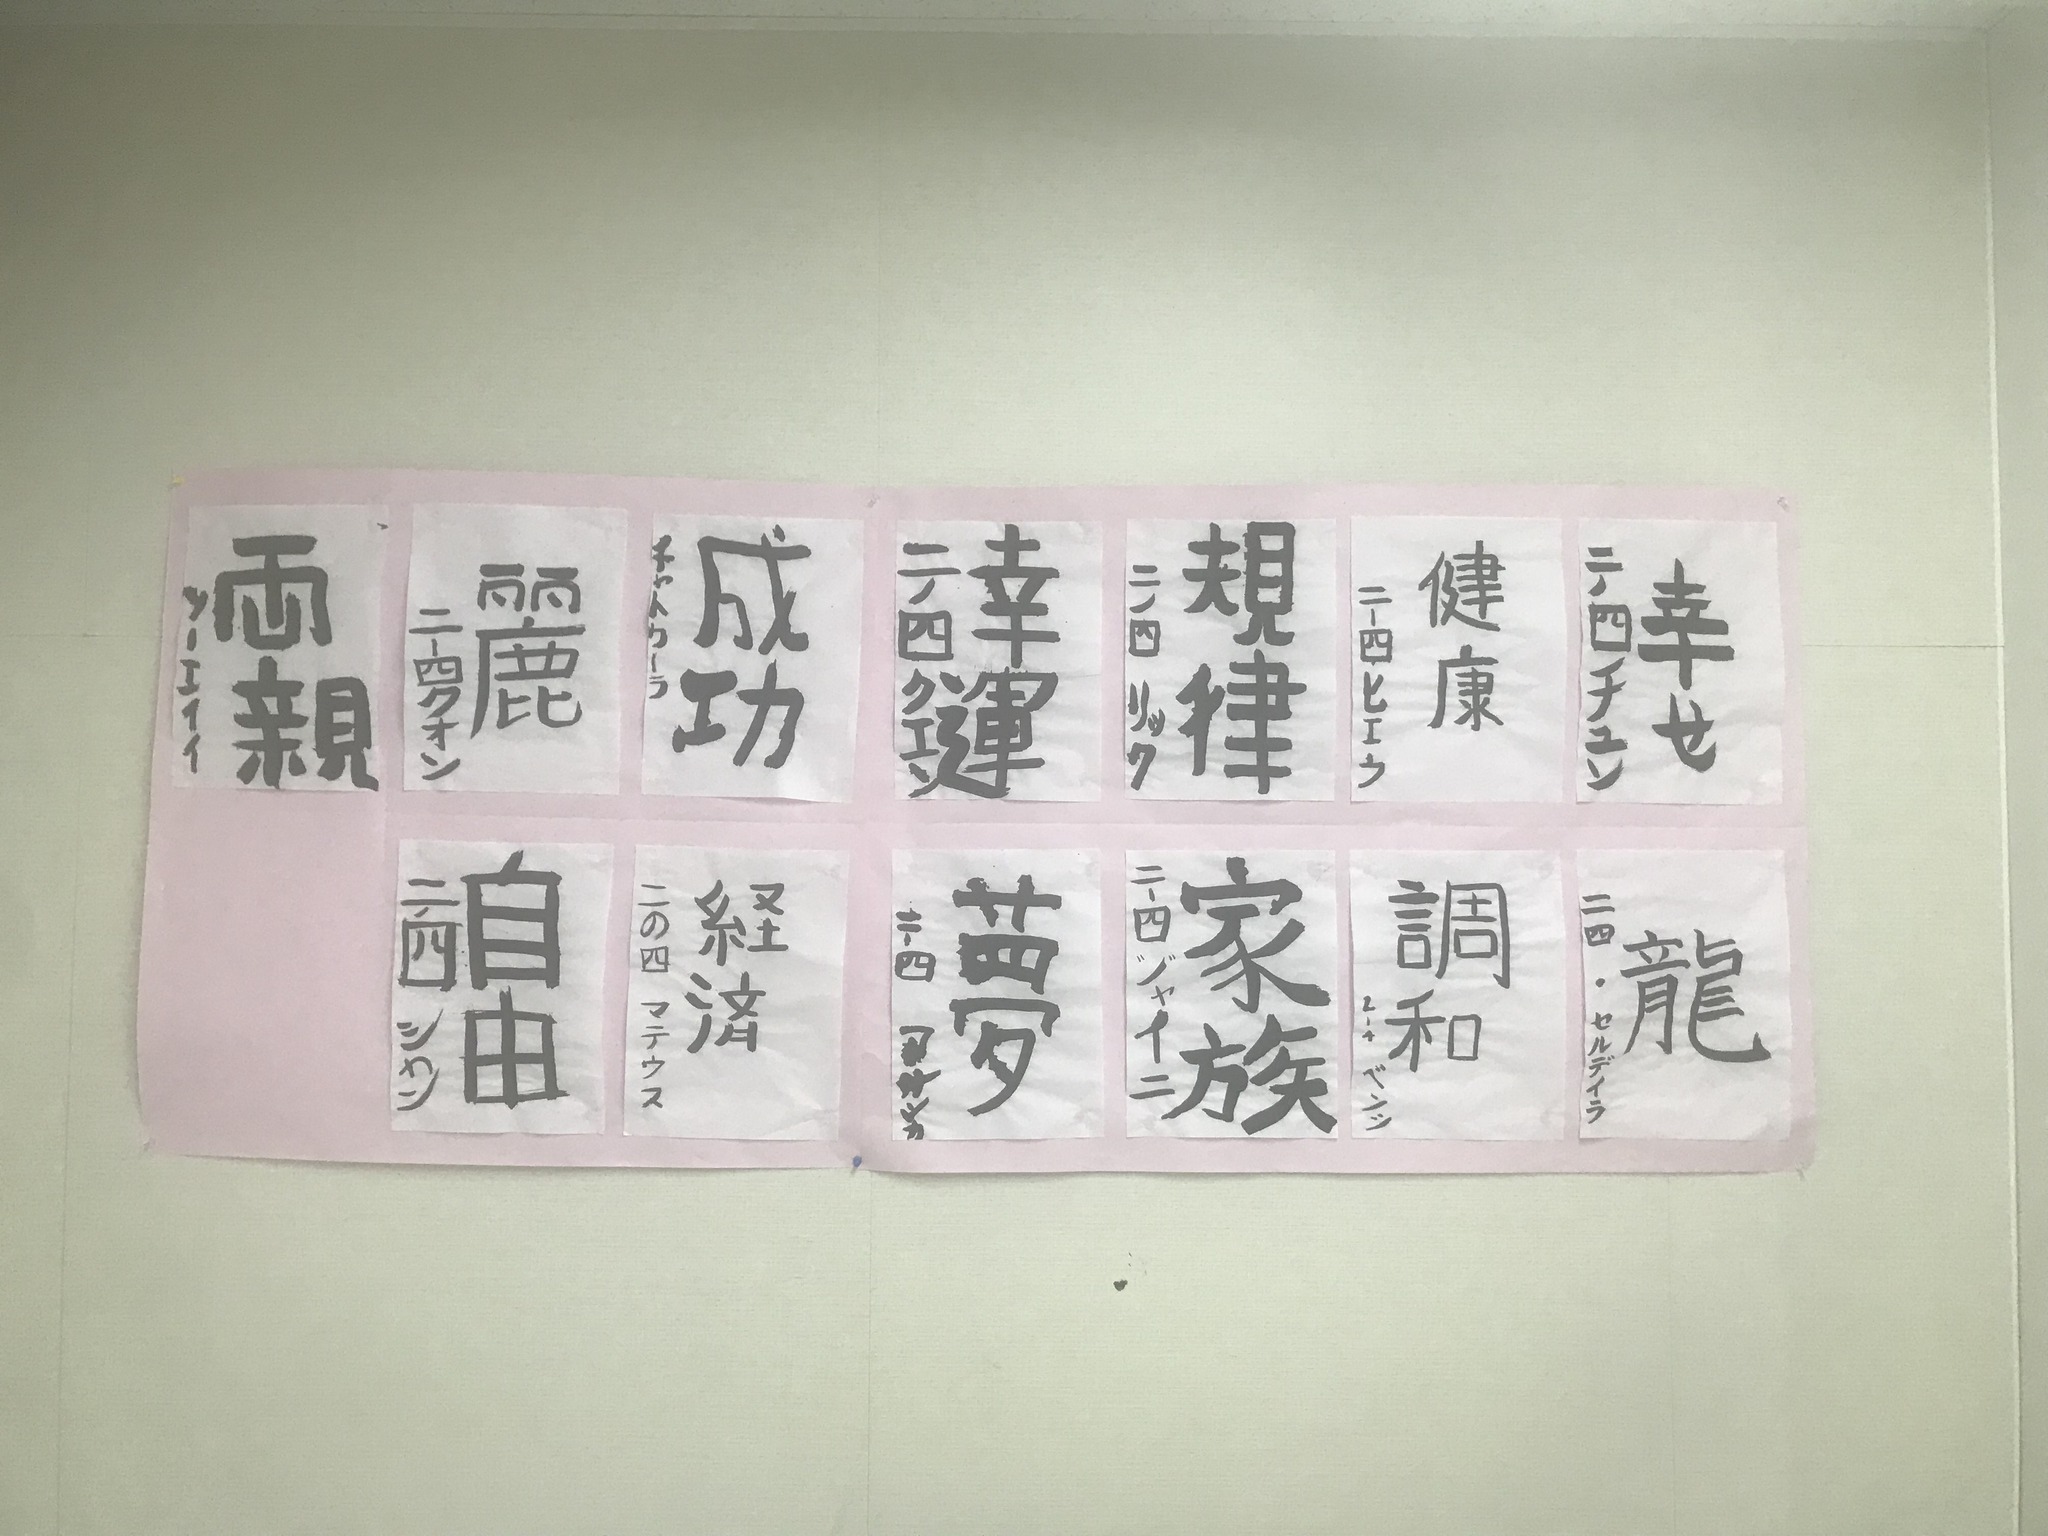 幸せ
二ノ四 チュン
健康
二ー四 ヒエウ
規律
二ノ四 リック
幸運
二ノ四 クエン
成功
麗
二ー四 クオン
両親
ツーエイイ
龍
二四・セルデイラ
調和
ベンジ
家族
二ー四 ジャイニ
夢
二ー四
経済
二の四 マテウス
自由
二ノ四 シャン